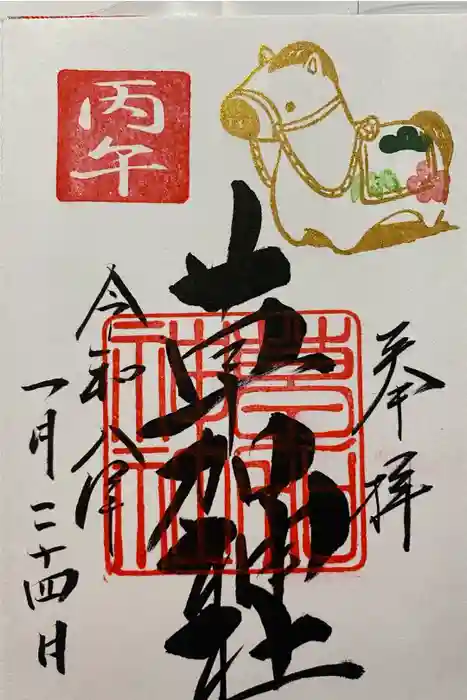 丙午
奉拝
草加神社
令和八年
一月二十四日